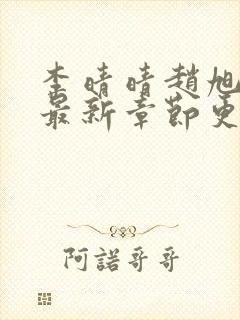 李晴晴趙旭
最新章節更
阿諾哥哥